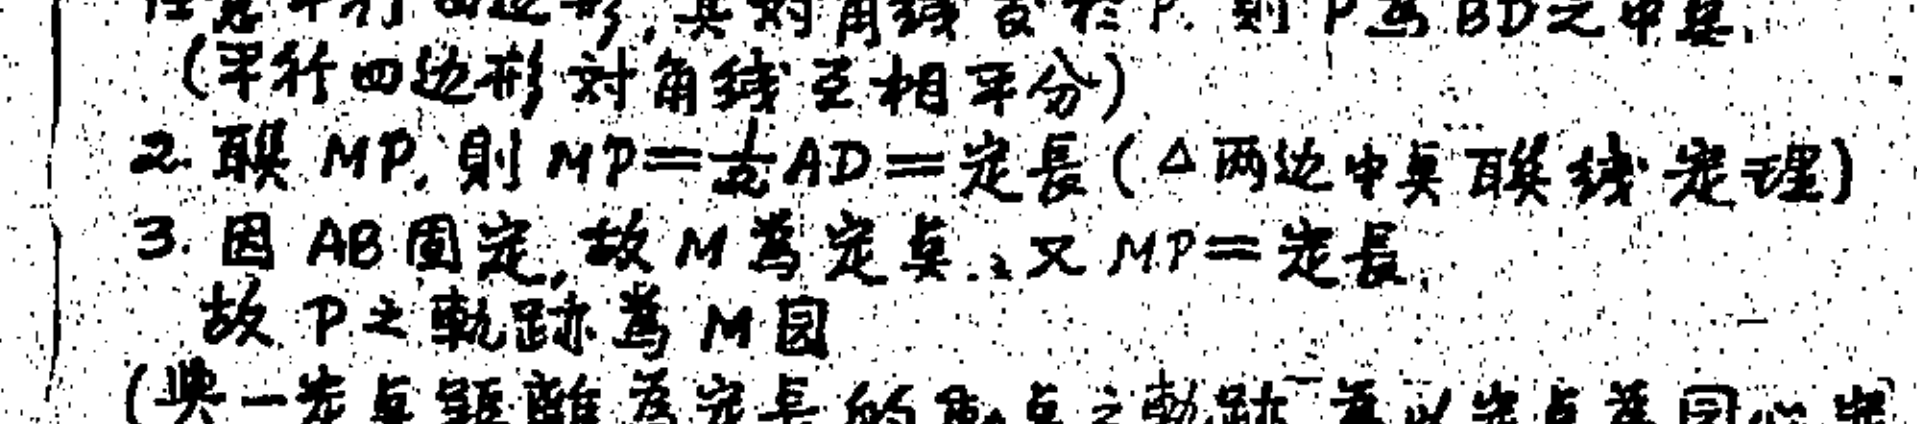 任意平行四边形,其対角线交於P.則P為BD之中点.
(平行四边形対角线互相平分)
2. 聯MP,則MP=½AD=定長(△两边中点聯线定理)
3. 因AB固定,故M為定点.,又MP=定長.
故P之軌跡為M圆
(與一定点距離為定長的動点之軌跡為以定点為圆心定